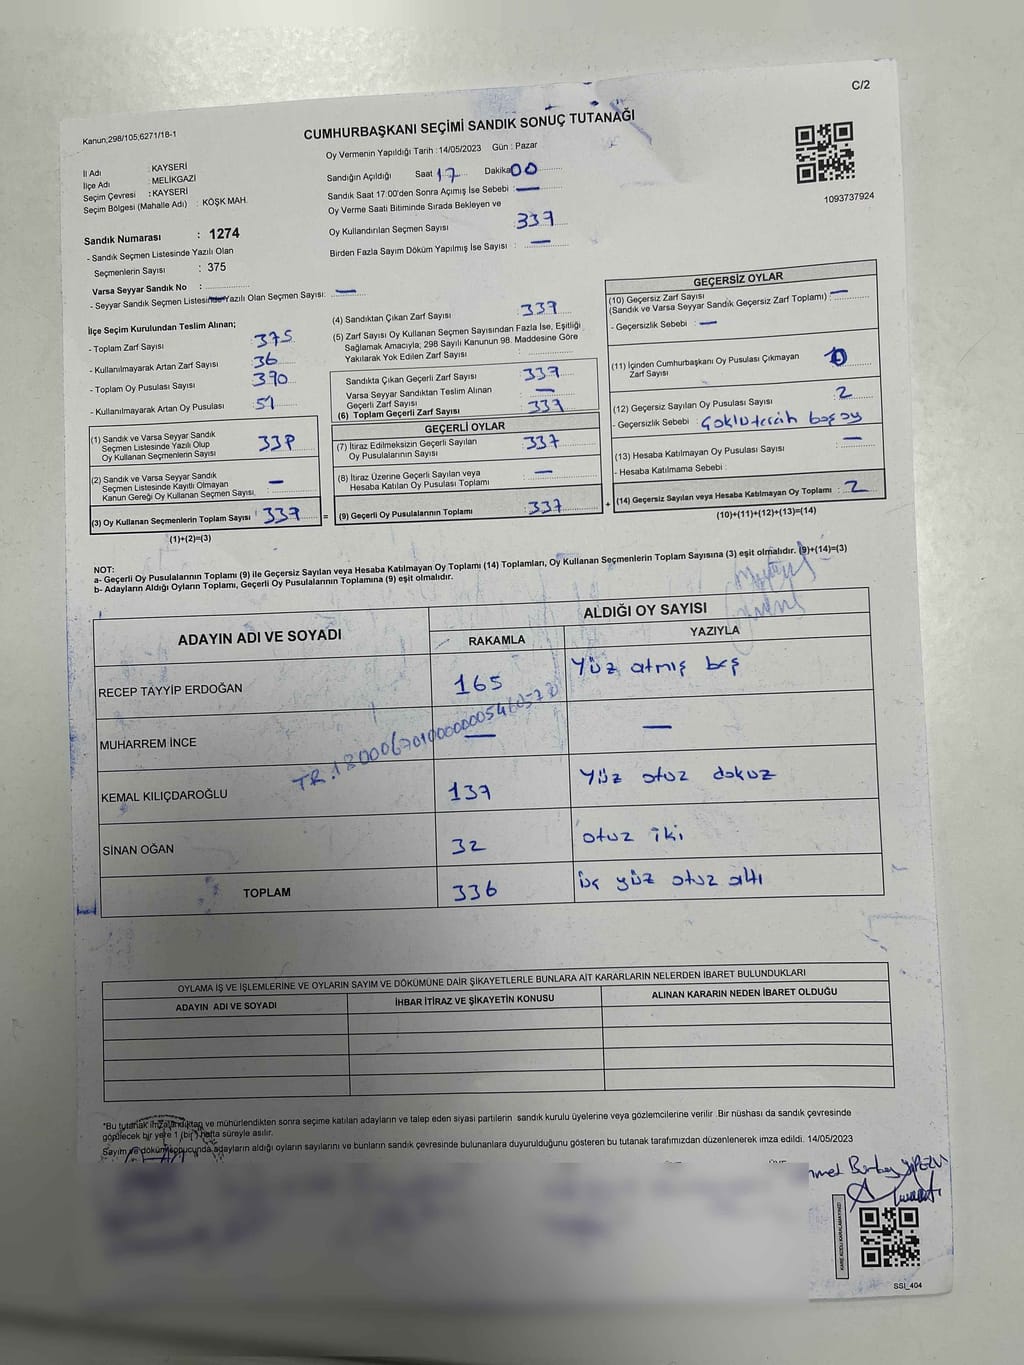 C/2
Kanun,298/105,6271/18-1
CUMHURBAŞKANI SEÇİMİ SANDIK SONUÇ TUTANAĞI
Oy Vermenin Yapıldığı Tarih : 14/05/2023 Gün : Pazar
İl Adı : KAYSERİ
İlçe Adı : MELİKGAZİ
Seçim Çevresi : KAYSERİ
Seçim Bölgesi (Mahalle Adı) : KÖŞK MAH.
Sandığın Açıldığı Saat 17 Dakika 00
Sandık Saat 17:00'den Sonra Açımış İse Sebebi : —
Oy Verme Saati Bitiminde Sırada Bekleyen ve
Oy Kullandırılan Seçmen Sayısı 337
Birden Fazla Sayım Döküm Yapılmış İse Sayısı : —
1093737924
Sandık Numarası : 1274
- Sandık Seçmen Listesinde Yazılı Olan
Seçmenlerin Sayısı : 375
Varsa Seyyar Sandık No :
- Seyyar Sandık Seçmen Listesinde Yazılı Olan Seçmen Sayısı: —
İlçe Seçim Kurulundan Teslim Alınan;
- Toplam Zarf Sayısı 375
- Kullanılmayarak Artan Zarf Sayısı 36
- Toplam Oy Pusulası Sayısı 390
- Kullanılmayarak Artan Oy Pusulası 51
(1) Sandık ve Varsa Seyyar Sandık
Seçmen Listesinde Yazılı Olup
Oy Kullanan Seçmenlerin Sayısı
(2) Sandık ve Varsa Seyyar Sandık
Seçmen Listesinde Kayıtlı Olmayan
Kanun Gereği Oy Kullanan Seçmen Sayısı, —
(3) Oy Kullanan Seçmenlerin Toplam Sayısı : 337 =
(1)+(2)=(3)
(4) Sandıktan Çıkan Zarf Sayısı 337
(5) Zarf Sayısı Oy Kullanan Seçmen Sayısından Fazla İse, Eşitliği
Sağlamak Amacıyla; 298 Sayılı Kanunun 98. Maddesine Göre
Yakılarak Yok Edilen Zarf Sayısı :
Sandıkta Çıkan Geçerli Zarf Sayısı : 337
Varsa Seyyar Sandıktan Teslim Alınan
Geçerli Zarf Sayısı : —
(6) Toplam Geçerli Zarf Sayısı : 337
GEÇERLİ OYLAR
(7) İtiraz Edilmeksizin Geçerli Sayılan
Oy Pusulalarının Sayısı : 337
(8) İtiraz Üzerine Geçerli Sayılan veya
Hesaba Katılan Oy Pusulası Toplamı : —
(9) Geçerli Oy Pusulalarının Toplamı : 337 +
GEÇERSİZ OYLAR
(10) Geçersiz Zarf Sayısı
(Sandık ve Varsa Seyyar Sandık Geçersiz Zarf Toplamı) : —
- Geçersizlik Sebebi : —
(11) İçinden Cumhurbaşkanı Oy Pusulası Çıkmayan
Zarf Sayısı 0
(12) Geçersiz Sayılan Oy Pusulası Sayısı : 2
- Geçersizlik Sebebi : Çoklu tercih boş oy
(13) Hesaba Katılmayan Oy Pusulası Sayısı : —
- Hesaba Katılmama Sebebi :
(14) Geçersiz Sayılan veya Hesaba Katılmayan Oy Toplamı : 2
(10)+(11)+(12)+(13)=(14)
NOT:
a- Geçerli Oy Pusulalarının Toplamı (9) ile Geçersiz Sayılan veya Hesaba Katılmayan Oy Toplamı (14) Toplamları, Oy Kullanan Seçmenlerin Toplam Sayısına (3) eşit olmalıdır. (9)+(14)=(3)
b- Adayların Aldığı Oyların Toplamı, Geçerli Oy Pusulalarının Toplamına (9) eşit olmalıdır.
ADAYIN ADI VE SOYADI
ALDIĞI OY SAYISI
RAKAMLA YAZIYLA
RECEP TAYYİP ERDOĞAN 165 Yüz atmış beş
MUHARREM İNCE — —
KEMAL KILIÇDAROĞLU 139 Yüz otuz dokuz
SİNAN OĞAN 32 otuz iki
TOPLAM 336 üç yüz otuz altı
OYLAMA İŞ VE İŞLEMLERİNE VE OYLARIN SAYIM VE DÖKÜMÜNE DAİR ŞİKAYETLERLE BUNLARA AİT KARARLARIN NELERDEN İBARET BULUNDUKLARI
ADAYIN ADI VE SOYADI İHBAR İTİRAZ VE ŞİKAYETİN KONUSU ALINAN KARARIN NEDEN İBARET OLDUĞU
*Bu tutanak imzalandıktan ve mühürlendikten sonra seçime katılan adayların ve talep eden siyasi partilerin sandık kurulu üyelerine veya gözlemcilerine verilir .Bir nüshası da sandık çevresinde
görülecek bir yere 1 (bir) hafta süreyle asılır.
Sayım ve döküm sonucunda adayların aldığı oyların sayılarını ve bunların sandık çevresinde bulunanlara duyurulduğunu gösteren bu tutanak tarafımızdan düzenlenerek imza edildi. 14/05/2023
KARE KODU KARALAMAYINIZ!
SSI_404